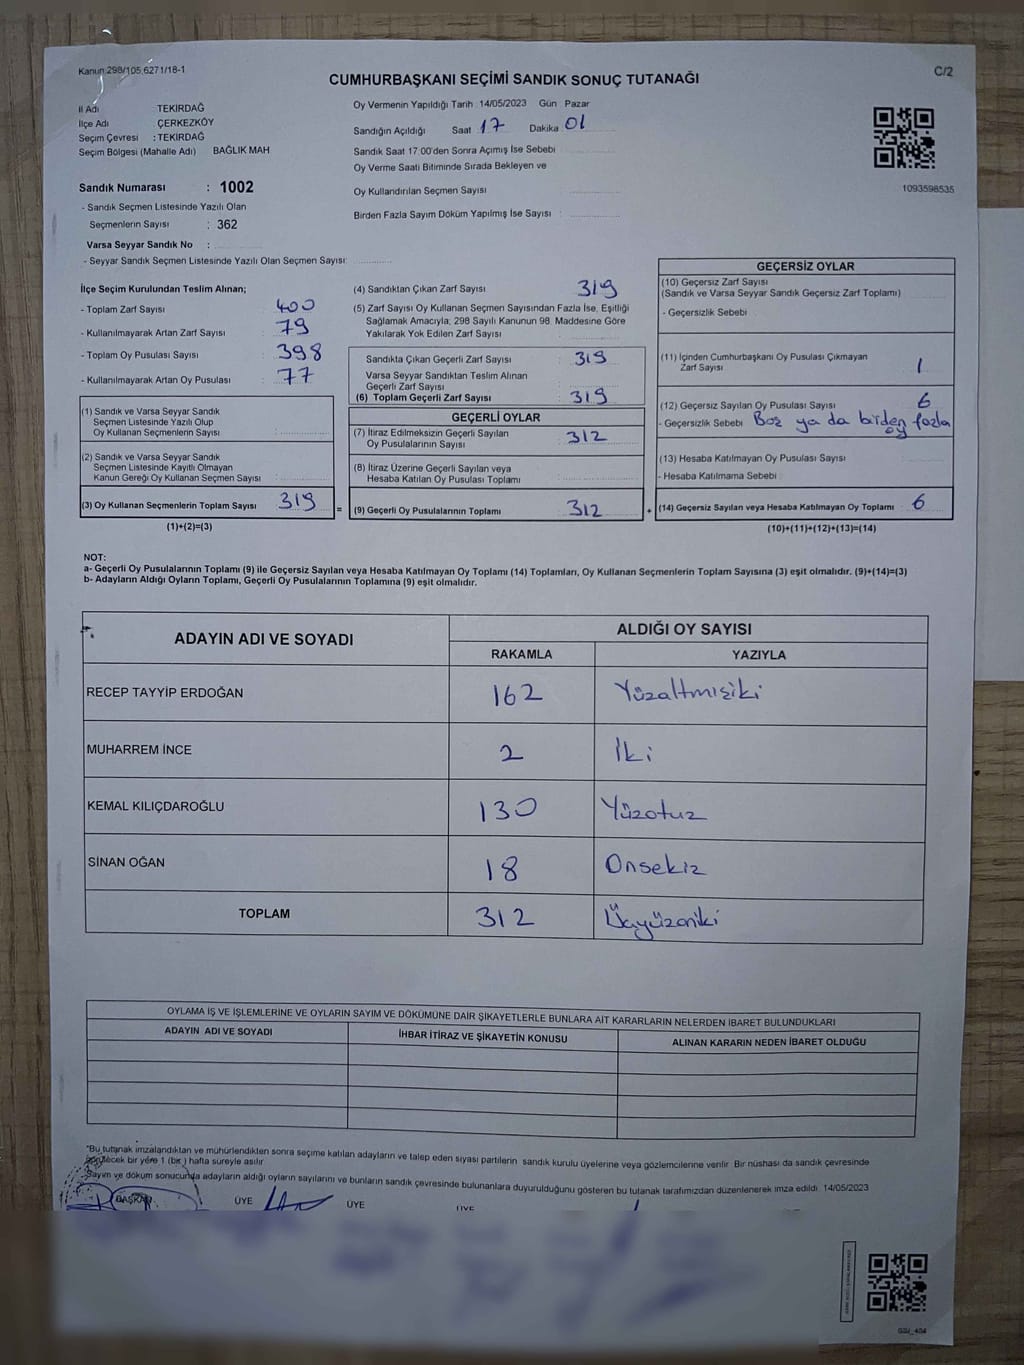 Kanun 298/105,6271/18-1
C/2
CUMHURBAŞKANI SEÇİMİ SANDIK SONUÇ TUTANAĞI
İl Adı : TEKİRDAĞ
İlçe Adı ÇERKEZKÖY
Seçim Çevresi : TEKİRDAĞ
Seçim Bölgesi (Mahalle Adı) BAĞLIK MAH
Sandık Numarası : 1002
- Sandık Seçmen Listesinde Yazılı Olan
Seçmenlerin Sayısı : 362
Varsa Seyyar Sandık No :
- Seyyar Sandık Seçmen Listesinde Yazılı Olan Seçmen Sayısı:
Oy Vermenin Yapıldığı Tarih 14/05/2023 Gün Pazar
Sandığın Açıldığı Saat 17 Dakika 01
Sandık Saat 17:00'den Sonra Açımış İse Sebebi
Oy Verme Saati Bitiminde Sırada Bekleyen ve
Oy Kullandırılan Seçmen Sayısı
Birden Fazla Sayım Döküm Yapılmış İse Sayısı :
1093598535
İlçe Seçim Kurulundan Teslim Alınan;
- Toplam Zarf Sayısı : 400
- Kullanılmayarak Artan Zarf Sayısı : 79
- Toplam Oy Pusulası Sayısı : 398
- Kullanılmayarak Artan Oy Pusulası : 77
(1) Sandık ve Varsa Seyyar Sandık
Seçmen Listesinde Yazılı Olup
Oy Kullanan Seçmenlerin Sayısı :
(2) Sandık ve Varsa Seyyar Sandık
Seçmen Listesinde Kayıtlı Olmayan
Kanun Gereği Oy Kullanan Seçmen Sayısı :
(3) Oy Kullanan Seçmenlerin Toplam Sayısı 319
(1)+(2)=(3)
(4) Sandıktan Çıkan Zarf Sayısı : 319
(5) Zarf Sayısı Oy Kullanan Seçmen Sayısından Fazla İse, Eşitliği
Sağlamak Amacıyla, 298 Sayılı Kanunun 98. Maddesine Göre
Yakılarak Yok Edilen Zarf Sayısı :
Sandıkta Çıkan Geçerli Zarf Sayısı : 319
Varsa Seyyar Sandıktan Teslim Alınan
Geçerli Zarf Sayısı
(6) Toplam Geçerli Zarf Sayısı : 319
GEÇERLİ OYLAR
(7) İtiraz Edilmeksizin Geçerli Sayılan
Oy Pusulalarının Sayısı : 312
(8) İtiraz Üzerine Geçerli Sayılan veya
Hesaba Katılan Oy Pusulası Toplamı
= (9) Geçerli Oy Pusulalarının Toplamı 312
GEÇERSİZ OYLAR
(10) Geçersiz Zarf Sayısı
(Sandık ve Varsa Seyyar Sandık Geçersiz Zarf Toplamı)
- Geçersizlik Sebebi
(11) İçinden Cumhurbaşkanı Oy Pusulası Çıkmayan
Zarf Sayısı 1
(12) Geçersiz Sayılan Oy Pusulası Sayısı 6
- Geçersizlik Sebebi Boş ya da birden fazla
oy
(13) Hesaba Katılmayan Oy Pusulası Sayısı
- Hesaba Katılmama Sebebi
+ (14) Geçersiz Sayılan veya Hesaba Katılmayan Oy Toplamı 6
(10)+(11)+(12)+(13)=(14)
NOT:
a- Geçerli Oy Pusulalarının Toplamı (9) ile Geçersiz Sayılan veya Hesaba Katılmayan Oy Toplamı (14) Toplamları, Oy Kullanan Seçmenlerin Toplam Sayısına (3) eşit olmalıdır. (9)+(14)=(3)
b- Adayların Aldığı Oyların Toplamı, Geçerli Oy Pusulalarının Toplamına (9) eşit olmalıdır.
ADAYIN ADI VE SOYADI
ALDIĞI OY SAYISI
RAKAMLA YAZIYLA
RECEP TAYYİP ERDOĞAN 162 Yüzaltmışiki
MUHARREM İNCE 2 İki
KEMAL KILIÇDAROĞLU 130 Yüzotuz
SİNAN OĞAN 18 Onsekiz
TOPLAM 312 Üçyüzoniki
OYLAMA İŞ VE İŞLEMLERİNE VE OYLARIN SAYIM VE DÖKÜMÜNE DAİR ŞİKAYETLERLE BUNLARA AİT KARARLARIN NELERDEN İBARET BULUNDUKLARI
ADAYIN ADI VE SOYADI İHBAR İTİRAZ VE ŞİKAYETİN KONUSU ALINAN KARARIN NEDEN İBARET OLDUĞU
*Bu tutanak imzalandıktan ve mühürlendikten sonra seçime katılan adayların ve talep eden siyasi partilerin sandık kurulu üyelerine veya gözlemcilerine verilir. Bir nüshası da sandık çevresinde
görülecek bir yere 1 (bir) hafta süreyle asılır
Sayım ve döküm sonucunda adayların aldığı oyların sayılarını ve bunların sandık çevresinde bulunanlara duyurulduğunu gösteren bu tutanak tarafımızdan düzenlenerek imza edildi. 14/05/2023
BAŞKAN ÜYE ÜYE ÜYE